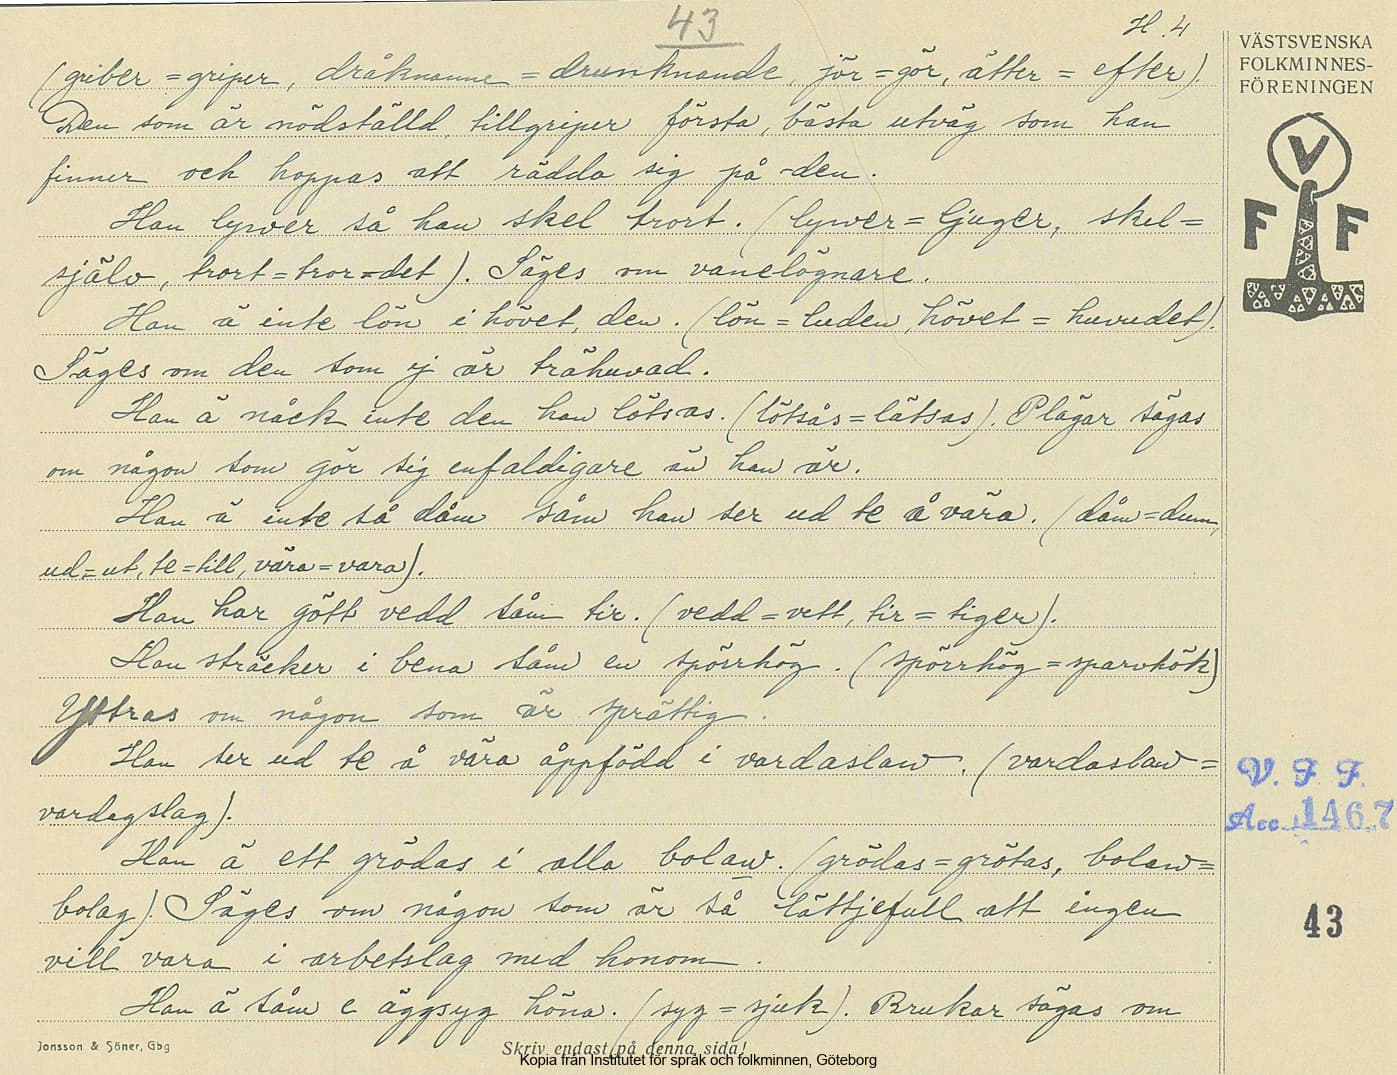 43
H. 4
(griber = griper, dråknanne = drunknande, jör = gör, ätter = efter).
Den som är nödställd, tillgriper första, bästa utväg som han
finner och hoppas att rädda sig på den.
Han lywer så han skel trort. (lywer = ljuger, skel =
själv, trort = tror det). Säges om vanelögnare.
Han ä inte lön i hövet, den. (lön = luden, hövet = huvudet).
Säges om den som ej är trähuvad.
Han ä nåck inte den han lötsas. (lötsås = låtsas). Plägar sägas
om någon som gör sig enfaldigare än han är.
Han ä inte så dåm såm han ser ud te å vära. (dåm = dum,
ud = ut, te = till, vära = vara).
Han har gött vedd såm tir. (vedd = vett, tir = tiger).
Han sträcker i bena såm en spörrhög. (spörrhög = sparvhök)
Yttras om någon som är sprättig.
Han ser ud te å vära åppfödd i vardaslaw. (vardaslaw =
vardagslag).
Han ä ett grödas i alla bolaw. (grödas = grötas, bolaw =
bolag). Säges om någon som är så lättjefull att ingen
vill vara i arbetslag med honom.
Han ä såm e äggsyg höna. (syg = sjuk). Brukar sägas om
VÄSTSVENSKA
FOLKMINNES-
FÖRENINGEN
V
F F
V. F. F.
Acc. 1467
43
Jonsson & Söner, Gbg
Skriv endast på denna sida!
Kopia från Institutet för språk och folkminnen, Göteborg